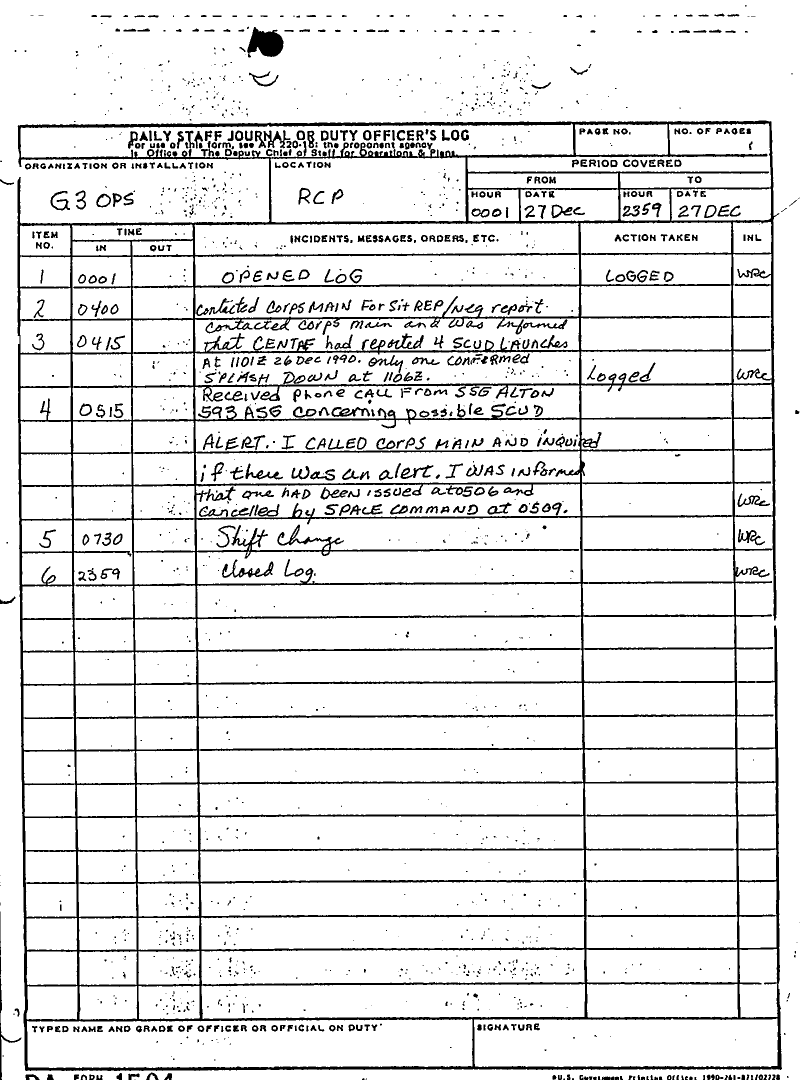 DAILY STAFF JOURNAL OR DUTY OFFICER'S LOG
For use of this form, see AR 220-15; the proponent agency
is Office of The Deputy Chief of Staff for Operations & Plans.
PAGE NO.
NO. OF PAGES
1
ORGANIZATION OR INSTALLATION
G3 OPS
LOCATION
RCP
PERIOD COVERED
FROM
TO
HOUR
DATE
HOUR
DATE
0001
27 Dec
2359
27 DEC
ITEM NO.
TIME
IN
OUT
INCIDENTS, MESSAGES, ORDERS, ETC.
ACTION TAKEN
INL
1 0001 OPENED LOG LOGGED WRC
2 0400 contacted CORPS MAIN For Sit REP/Neg report
3 0415 contacted corps main and was informed
that CENTAF had reported 4 SCUD LAunches
At 1101Z 26 Dec 1990. only one conFirmed
SPLASH DOWN at 1106Z. Logged WRC
4 0515 Received Phone CALL From SSG ALTON
593 ASG concerning possible SCUD
ALERT. I CALLED CORPS MAIN AND INquired
if there was an alert. I WAS INFormed
that one HAD been issued at 0506 and
cancelled by SPACE COMMAND at 0509. WRC
5 0730 Shift Change WRC
6 2359 Closed Log. WRC
TYPED NAME AND GRADE OF OFFICER OR OFFICIAL ON DUTY
SIGNATURE
DA FORM 1594
U.S. Government Printing Office: 1990-261-871/02228